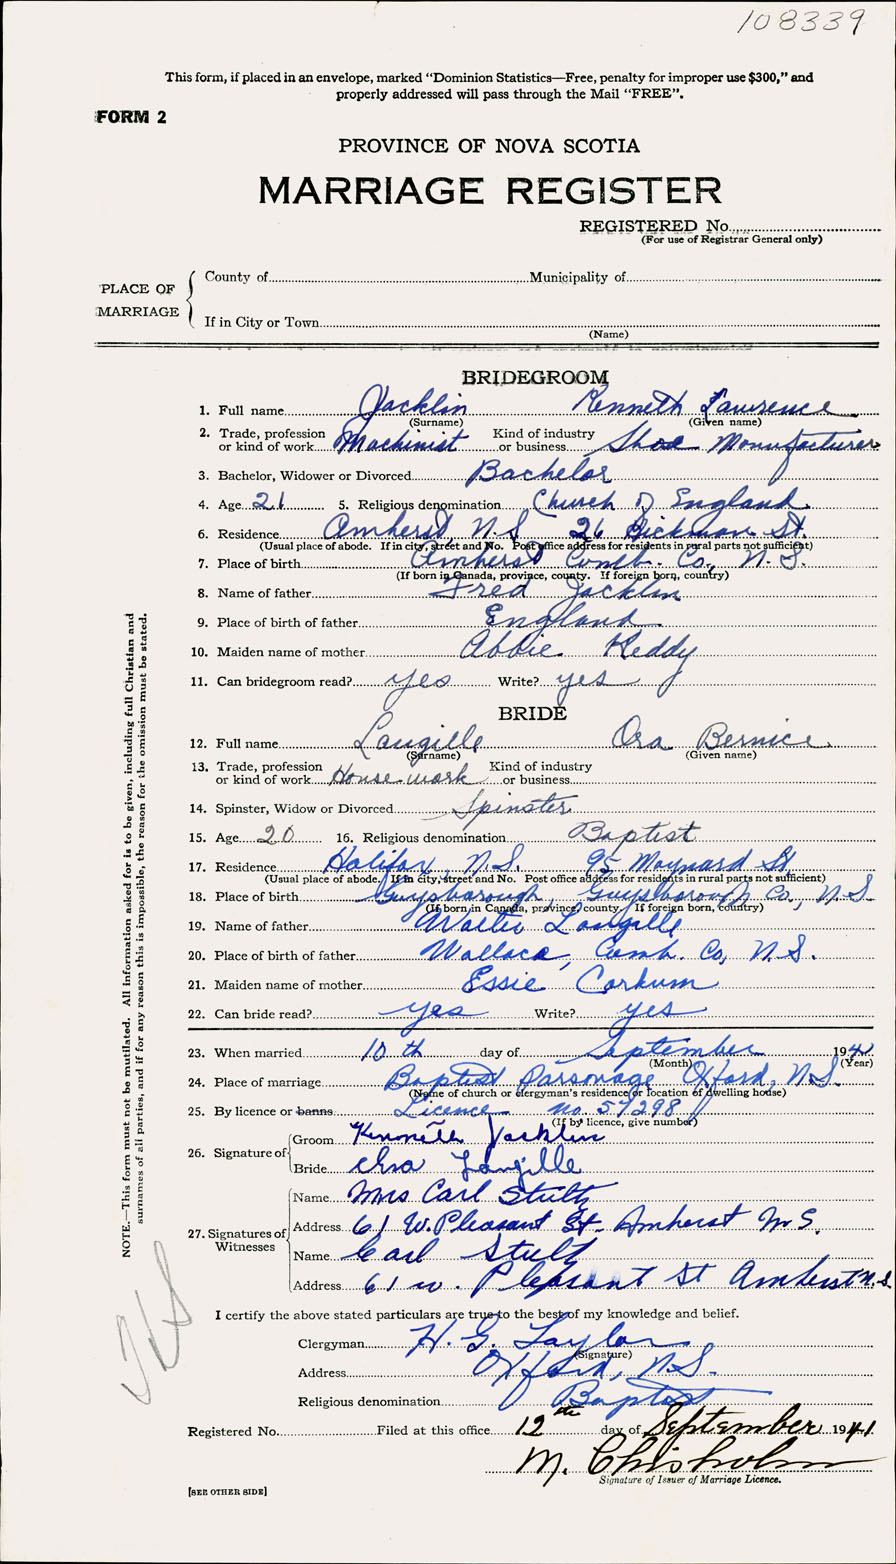 108339
This form, if placed in an envelope, marked “Dominion Statistics—Free, penalty for improper use $300,” and
properly addressed will pass through the Mail “FREE”.
FORM 2
PROVINCE OF NOVA SCOTIA
MARRIAGE REGISTER
REGISTERED No.
(For use of Registrar General only)
PLACE OF MARRIAGE
County of Municipality of
If in City or Town
(Name)
BRIDEGROOM
1. Full name Jacklin Kenneth Lawrence
(Surname) (Given name)
2. Trade, profession or kind of work Machinist Kind of industry or business Shoe Manufacturer
3. Bachelor, Widower or Divorced Bachelor
4. Age 21 5. Religious denomination Church of England
6. Residence Amherst, N.S. 26 Hickman St.
(Usual place of abode. If in city, street and No. Post office address for residents in rural parts not sufficient)
7. Place of birth Amherst Cumb. Co., N.S.
(If born in Canada, province, county. If foreign born, country)
8. Name of father Fred Jacklin
9. Place of birth of father England
10. Maiden name of mother Abbie Keddy
11. Can bridegroom read? yes Write? yes
BRIDE
12. Full name Langille Ora Bernice
(Surname) (Given name)
13. Trade, profession or kind of work House-work Kind of industry or business
14. Spinster, Widow or Divorced Spinster
15. Age 20 16. Religious denomination Baptist
17. Residence Halifax, N.S. 95 Maynard St.
(Usual place of abode. If in city, street and No. Post office address for residents in rural parts not sufficient)
18. Place of birth Guysborough, Guysborough Co., N.S
(If born in Canada, province, county. If foreign born, country)
19. Name of father Walter Langille
20. Place of birth of father Wallace, Cumb. Co, N.S.
21. Maiden name of mother Essie Corkum
22. Can bride read? yes Write? yes
23. When married 10th day of September 1941
(Month) (Year)
24. Place of marriage Baptist Parsonage Oxford, N.S.
(Name of church or clergyman's residence or location of dwelling house)
25. By licence or banns Licence no. 57298
(If by licence, give number)
26. Signature of Groom Kenneth Jacklin
Bride Ora Langille
27. Signatures of Witnesses
Name Mrs Carl Stultz
Address 61 W. Pleasant St. Amherst N.S.
Name Carl Stultz
Address 61 w. Pleasant St Amherst N.S.
I certify the above stated particulars are true to the best of my knowledge and belief.
Clergyman H. G. Taylor
(Signature)
Address Oxford, N.S.
Religious denomination Baptist
Registered No. Filed at this office 12th day of September 1941
M. Chisholm
Signature of Issuer of Marriage Licence.
[SEE OTHER SIDE]
NOTE.—This form must not be mutilated. All information asked for is to be given, including full Christian and
surnames of all parties, and if for any reason this is impossible, the reason for the omission must be stated.